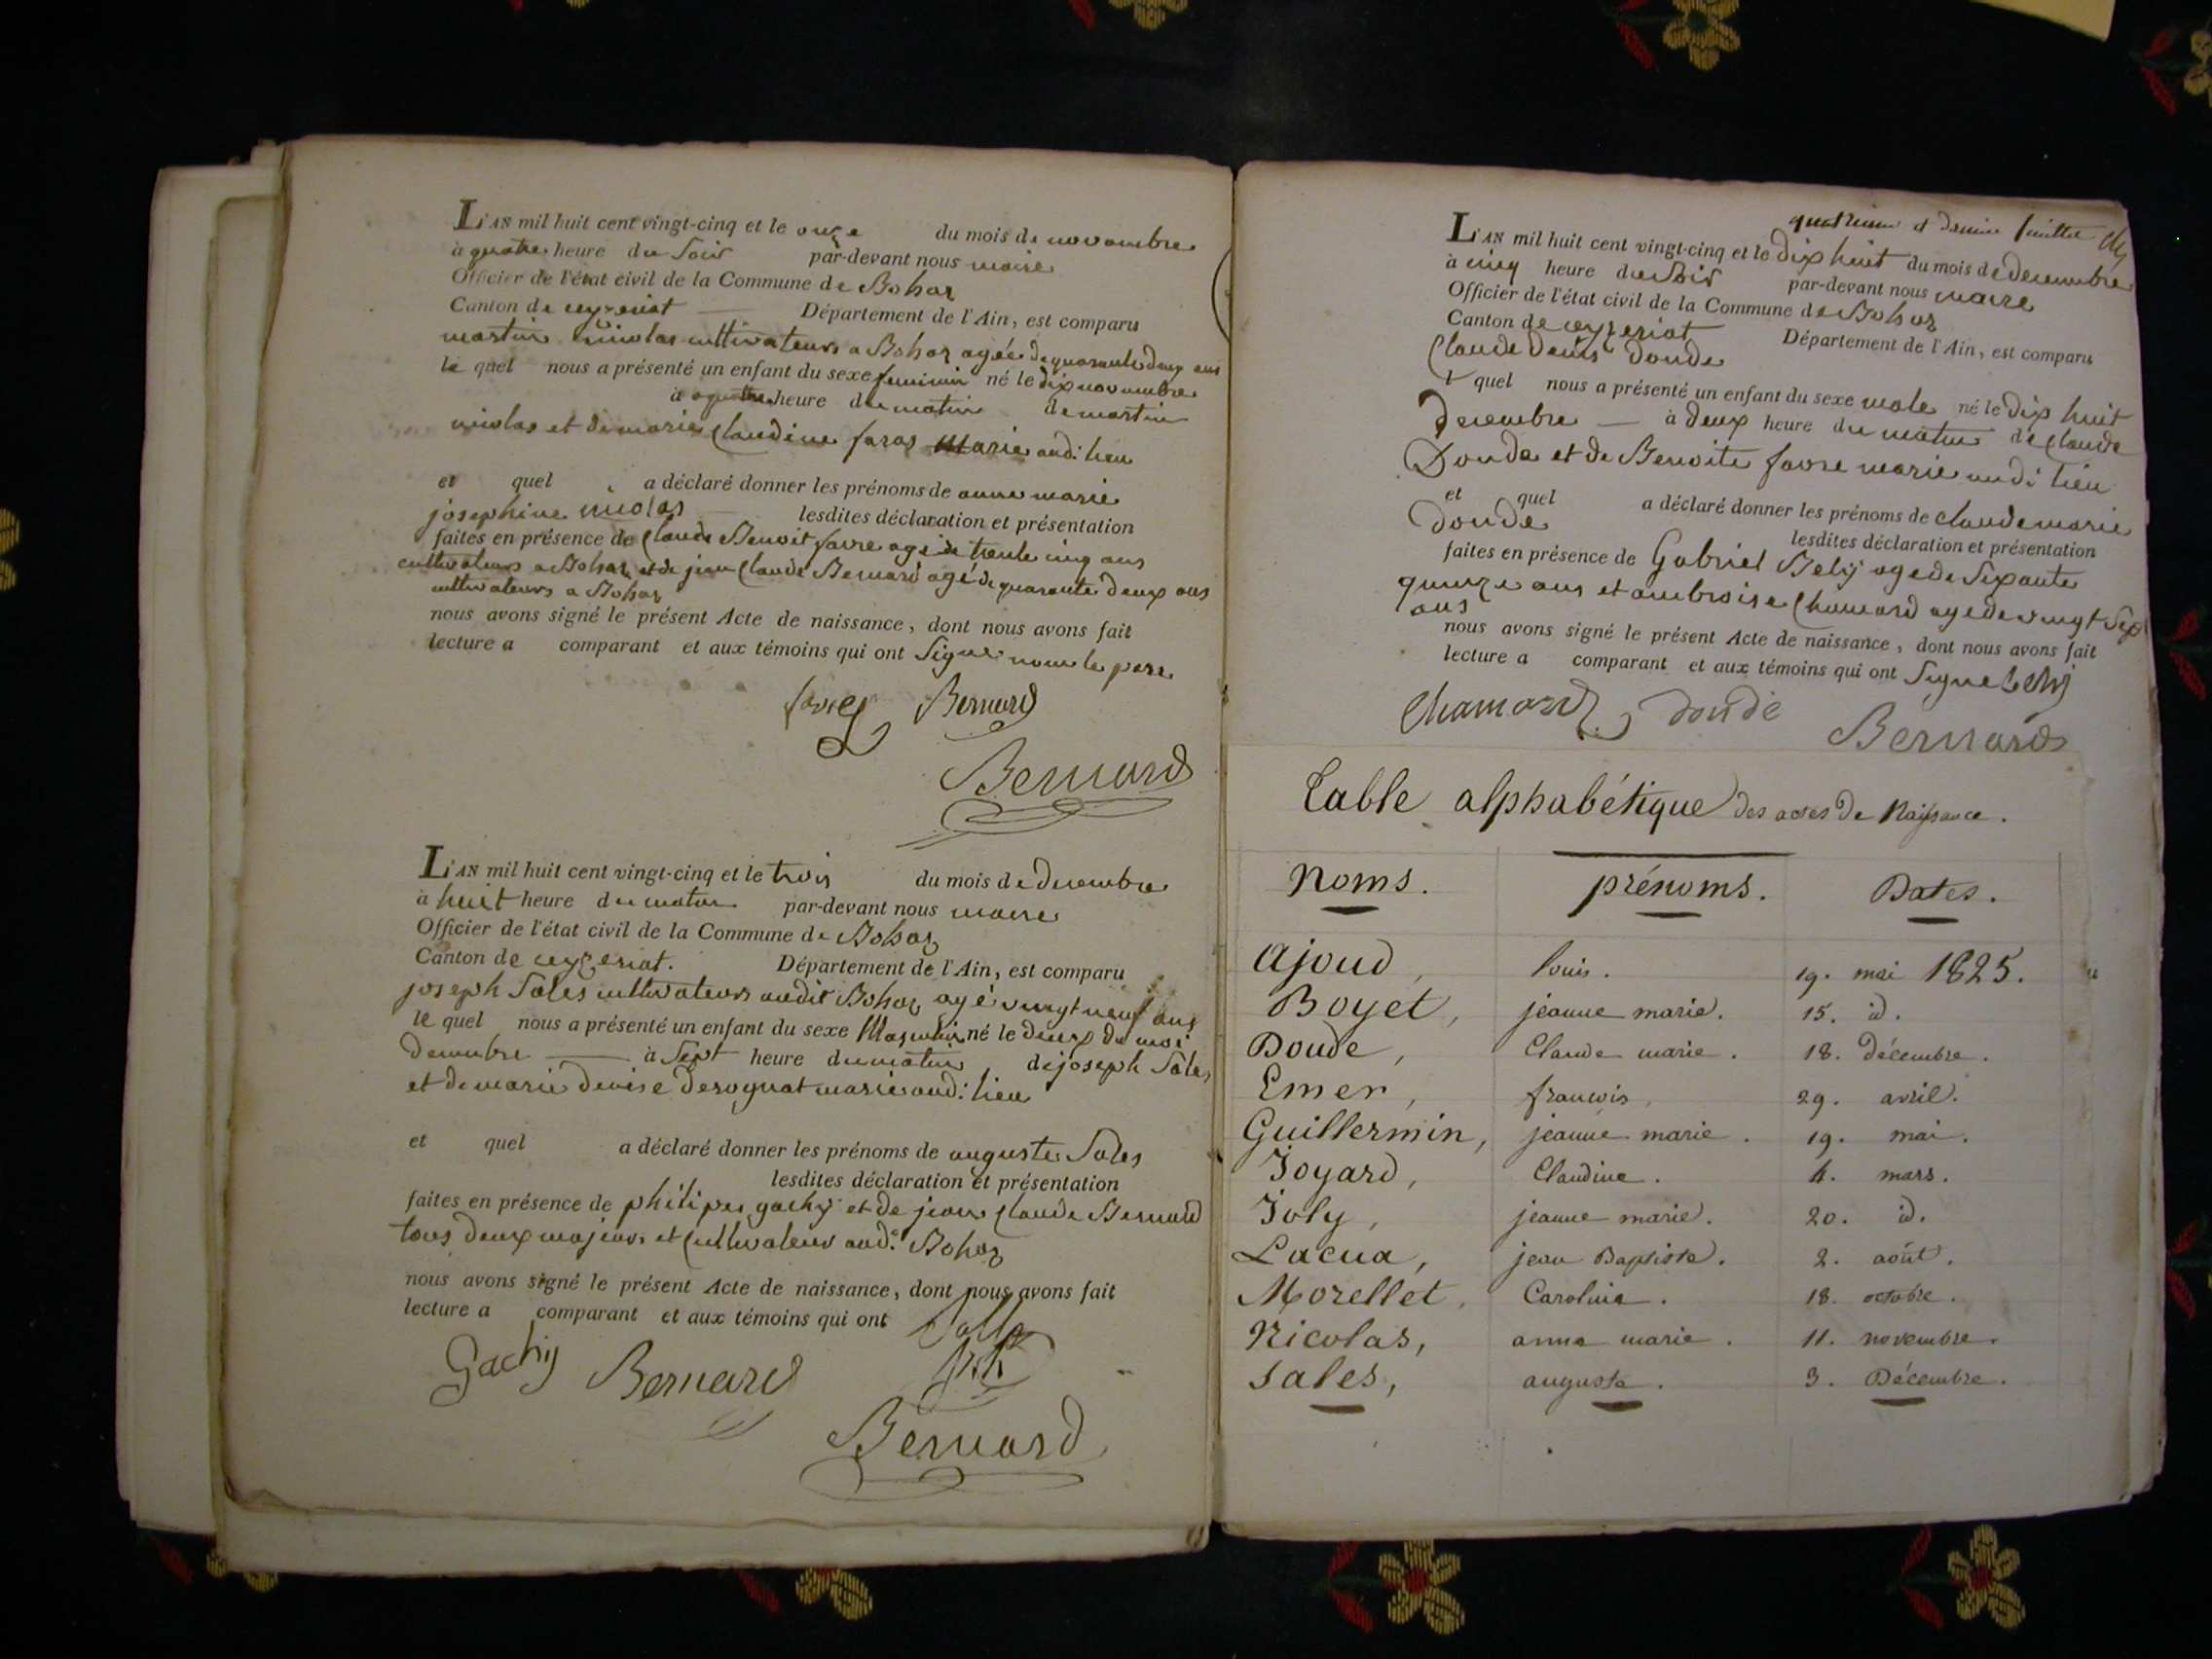 L'AN mil huit cent vingt-cinq et le onze du mois de novembre
à quatre heure du soir par-devant nous maire
Officier de l'état civil de la Commune de Bohaz
Canton de ceyzeriat Département de l'Ain, est comparu
martin nicolas cultivateur a Bohaz agée de quarante deux ans
le quel nous a présenté un enfant du sexe feminin né le dix novembre
à quatre heure du matin de martin
nicolas et de marie Claudine faras marie audi lieu
et quel a déclaré donner les prénoms de anne marie
josephine nicolas lesdites déclaration et présentation
faites en présence de Claude Benoit favre agé de trente cinq ans
cultivateur a Bohaz et de jean Claude Bernard agé de quarante deux ans
cultivateurs a Bohaz
nous avons signé le présent Acte de naissance, dont nous avons fait
lecture a comparant et aux témoins qui ont signé nom le pere
favre Bernard
Bernard
L'AN mil huit cent vingt-cinq et le trois du mois de decembre
à huit heure du matin par-devant nous maire
Officier de l'état civil de la Commune de Bohaz
Canton de ceyzeriat. Département de l'Ain, est comparu
joseph Sales cultivateur audit Bohaz agé vingt neuf ans
le quel nous a présenté un enfant du sexe Masculin né le deux du moi
decembre à sept heure du matin de joseph Sales
et de marie denise derognat marie audi lieu
et quel a déclaré donner les prénoms de auguste Sales
lesdites déclaration et présentation
faites en présence de philipes gachy et de jean Claude Bernard
tous deux majeurs et Cultivateur aud. Bohaz
nous avons signé le présent Acte de naissance, dont nous avons fait
lecture a comparant et aux témoins qui ont
Gachy Bernard
Bernard
quatrieme et dernier feuillet
L'AN mil huit cent vingt-cinq et le dix huit du mois de decembre
à cinq heure du soir par-devant nous maire
Officier de l'état civil de la Commune de Bohaz
Canton de ceyzeriat Département de l'Ain, est comparu
Claude denis doude
l quel nous a présenté un enfant du sexe male né le dix huit
decembre à deux heure du matin de Claude
Doude et de Benoite favre marie audi lieu
et quel a déclaré donner les prénoms de claude marie
doude lesdites déclaration et présentation
faites en présence de Gabriel Bely age de Sixante
quinze ans et ambroise Chamard age de vingt six
ans
nous avons signé le présent Acte de naissance, dont nous avons fait
lecture a comparant et aux témoins qui ont signé
Chamard doude Bernard
Table alphabétique des actes de Naissance.
Noms. prénoms. Dates.
Ajoud, louis. 19. mai 1825.
Boyet, jeanne marie. 15. id.
Doude, Claude marie. 18. décembre.
Emer, françois, 29. avril.
Guillermin, jeanne marie. 19. mai.
Joyard, Claudine. 4. mars.
Joly, jeanne marie. 20. id.
Lacua, jean Baptiste. 2. août.
Morellet, Caroline. 18. octobre.
Nicolas, anne marie. 11. novembre.
Sales, auguste. 3. Décembre.